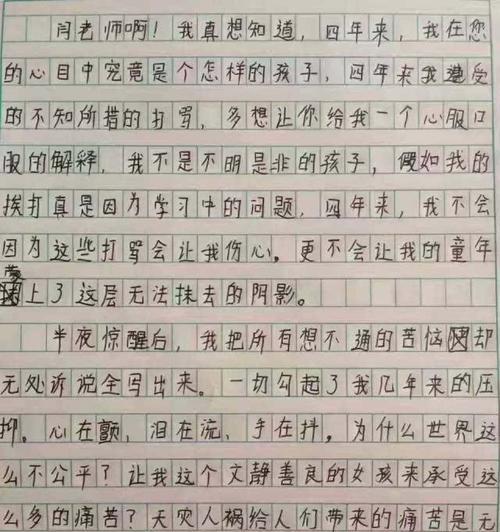 闫老师啊！我真想知道，四年来，我在您
的心目中究竟是个怎样的孩子，四年来我遭受
的不知所措的打骂，多想让你给我一个心服口
服的解释，我不是不明是非的孩子，假如我的
挨打真是因为学习中的问题，四年来，我不会
因为这些打骂会让我伤心。更不会让我的童年
蒙上了这层无法抹去的阴影。
半夜惊醒后，我把所有想不通的苦恼却
无处诉说全写出来。一切勾起了我几年来的压
抑。心在颤，泪在流，手在抖，为什么世界这
么不公平？让我这个文静善良的女孩来承受这
么多的痛苦？天灾人祸给人们带来的痛苦是无